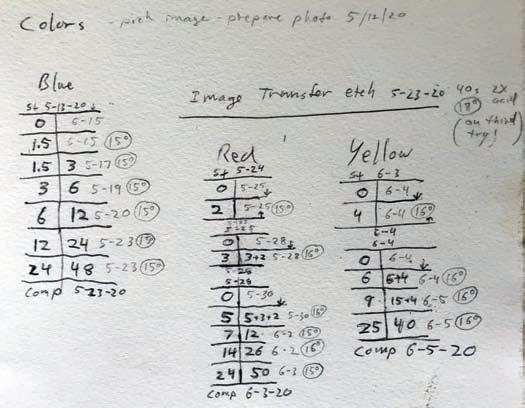 Colors - pick image - prepare photo 5/12/20
Blue
St 5-13-20 ↓
0 5-15
1.5 5-15 15°
1.5 3 5-17 15°
3 6 5-19 15°
6 12 5-20 15°
12 24 5-23 15°
24 48 5-23 15°
Comp 5-23-20
Image Transfer etch 5-23-20 40s 2x acid
18°
(on third try!)
Red
St 5-24
0 5-25 ↓
2 5-25 15°
0 5-28 ↓
3 3+2 5-28 16°
5-28
5-28
0 5-30 ↓
5 5+3+2 5-30 16°
7 12 6-2 15°
14 26 6-2 16°
24 50 6-3 15°
Comp 6-3-20
Yellow
St 6-3
0 6-4 ↓
4 6-4 16°
6-4
6-4
0 6-4 ↓
6 6+4 6-4 16°
9 15+4 6-5 16°
25 40 6-5 16°
Comp 6-5-20